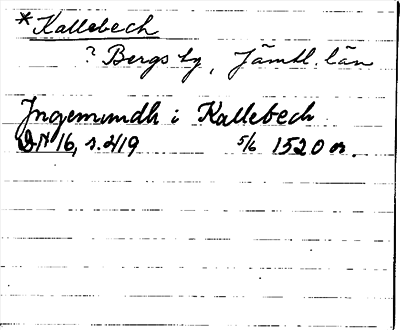 *Kallebech
? Bergs tg, Jämtl. län
Ingemundh i Kallebech
DN 16, s. 219 5/6 1520 or.